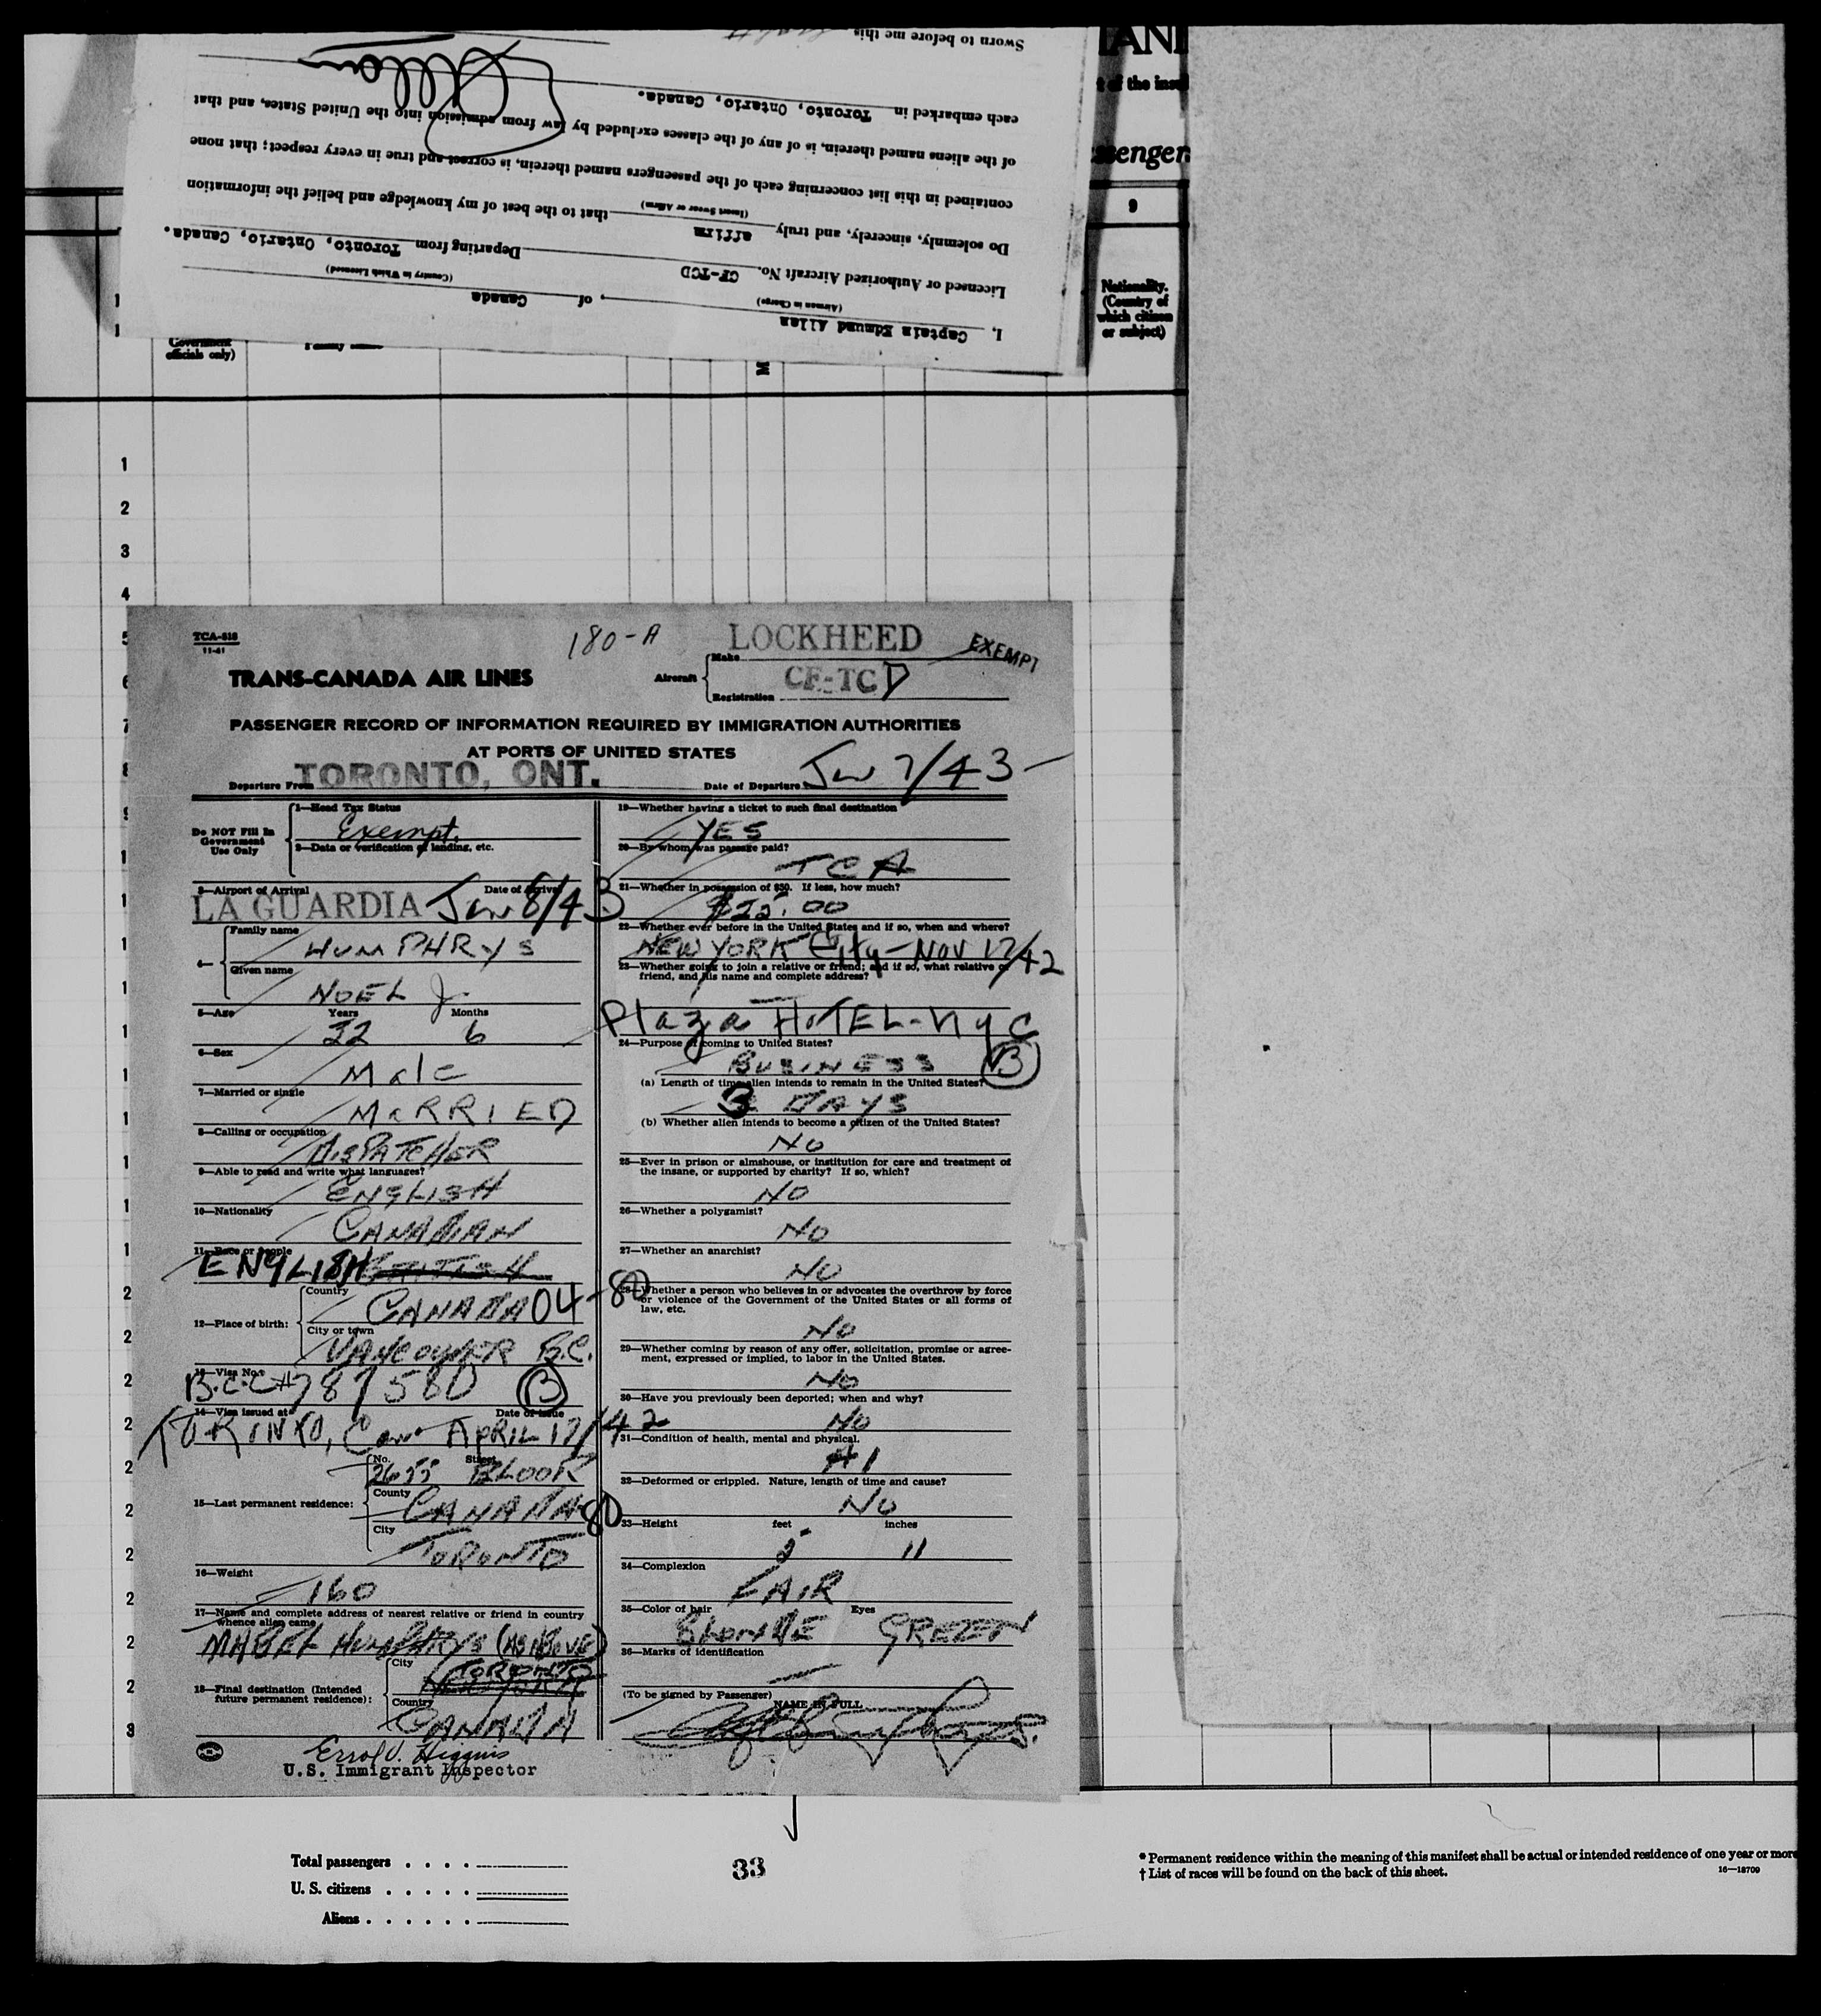 I, Captain Edmund Allen, of Canada
(Airman in Charge) (Country in Which Licensed)
Licensed or Authorized Aircraft No. CF-TCD Departing from Toronto, Ontario, Canada.
Do solemnly, sincerely, and truly affirm that to the best of my knowledge and belief the information
(Insert Swear or Affirm)
contained in this list concerning each of the passengers named therein, is correct and true in every respect; that none
of the aliens named therein, is of any of the classes excluded by law from admission into the United States, and that
each embarked in Toronto, Ontario, Canada.
Sworn to before me this
of the
9
Nationality.
(Country of
which citizen
or subject)
Government
officials only)
1
2
3
4
TCA-518
11-41
180-A
LOCKHEED
EXEMPT
TRANS-CANADA AIR LINES
Aircraft
Make
CF-TCD
Registration
PASSENGER RECORD OF INFORMATION REQUIRED BY IMMIGRATION AUTHORITIES
AT PORTS OF UNITED STATES
Departure From TORONTO, ONT. Date of Departure Jan 7/43
Do NOT Fill In
Government
Use Only
1—Head Tax Status
Exempt.
2—Data or verification of landing, etc.
3—Airport of Arrival Date of Arrival
LA GUARDIA Jan 8/43
4—
Family name
HUMPHRYS
Given name
NOEL J.
5—Age Years Months
32 6
6—Sex
Male
7—Married or single
MARRIED
8—Calling or occupation
DISPATCHER
9—Able to read and write what languages?
ENGLISH
10—Nationality
CANADIAN
11—Race or People
ENGLISH BRITISH
12—Place of birth:
Country
CANADA 04-80
City or town
VANCOUVER B.C.
13—Visa No.
B.C.C# 787580 B
14—Visa issued at Date of issue
TORONTO, Can APRIL 17/42
15—Last permanent residence:
No. Street
2655 BLOOR
County
CANADA 80
City
TORONTO
16—Weight
160
17—Name and complete address of nearest relative or friend in country
whence alien came
MABEL HUMPHRYS (AS ABOVE)
18—Final destination (Intended
future permanent residence):
City
TORONTO
NEW YORK
Country
CANADA
Errol V. Higgins
U.S. Immigrant Inspector
19—Whether having a ticket to such final destination
YES
20—By whom was passage paid?
TCA
21—Whether in possession of $50. If less, how much?
$25.00
22—Whether ever before in the United States and if so, when and where?
NEW YORK City - NOV 17/42
23—Whether going to join a relative or friend; and if so, what relative or
friend, and his name and complete address?
Plaza HOTEL - NYC
24—Purpose of coming to United States?
BUSINESS B
(a) Length of time alien intends to remain in the United States?
3 DAYS
(b) Whether alien intends to become a citizen of the United States?
NO
25—Ever in prison or almshouse, or institution for care and treatment of
the insane, or supported by charity? If so, which?
NO
26—Whether a polygamist?
NO
27—Whether an anarchist?
NO
28—Whether a person who believes in or advocates the overthrow by force
or violence of the Government of the United States or all forms of
law, etc.
NO
29—Whether coming by reason of any offer, solicitation, promise or agree-
ment, expressed or implied, to labor in the United States.
NO
30—Have you previously been deported; when and why?
NO
31—Condition of health, mental and physical.
A1
32—Deformed or crippled. Nature, length of time and cause?
NO
33—Height feet inches
5 11
34—Complexion
FAIR
35—Color of hair Eyes
BLONDE GREEN
36—Marks of identification
(To be signed by Passenger)
NAME IN FULL
Total passengers
U. S. citizens
Aliens
33
* Permanent residence within the meaning of this manifest shall be actual or intended residence of one year or more
† List of races will be found on the back of this sheet.
16—18709